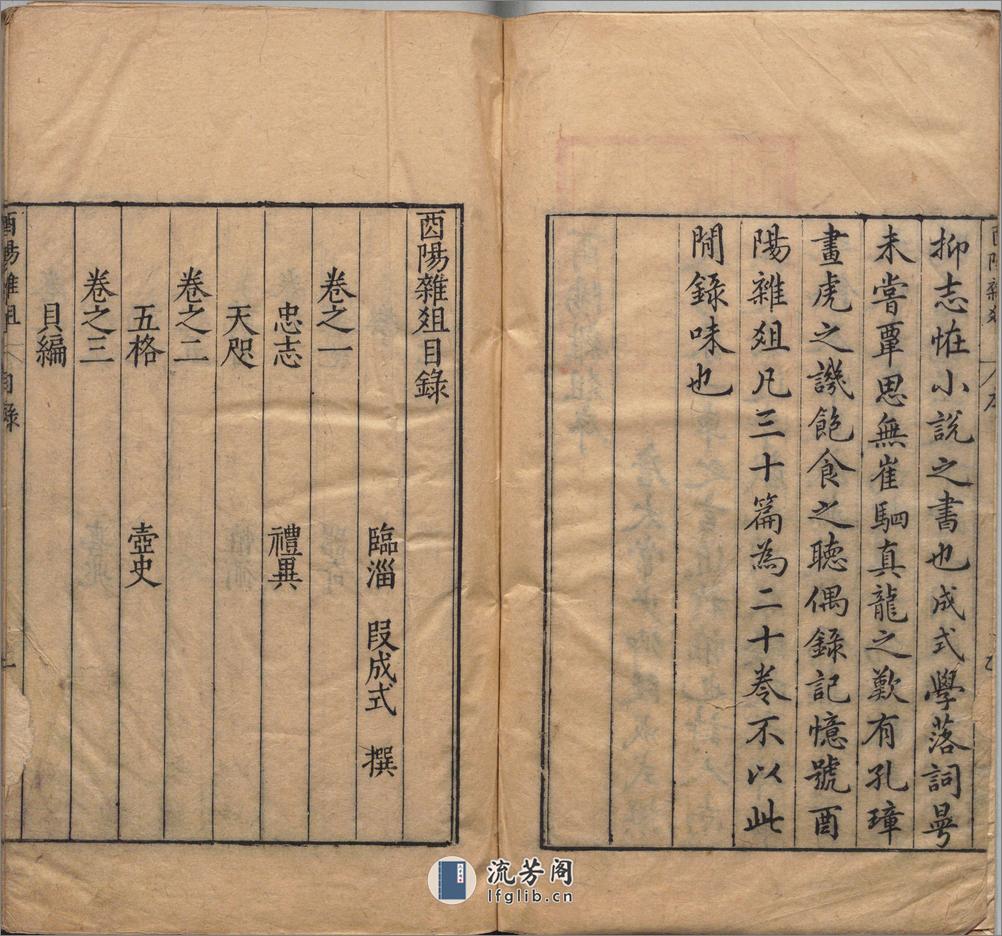 抑志怪小說之書也成式學落詞曼
未嘗覃思無崔駰真龍之歎有孔璋
畫虎之譏飽食之聴偶錄記憶號酉
陽雜俎凡三十篇為二十卷不以此
間錄味也
酉陽雜俎目錄
臨淄 段成式 撰
卷之一
忠志 禮異
天咫
卷之二
五格 壺史
卷之三
貝編
酉陽雜俎 目錄 一
流芳阁
lfglib.cn